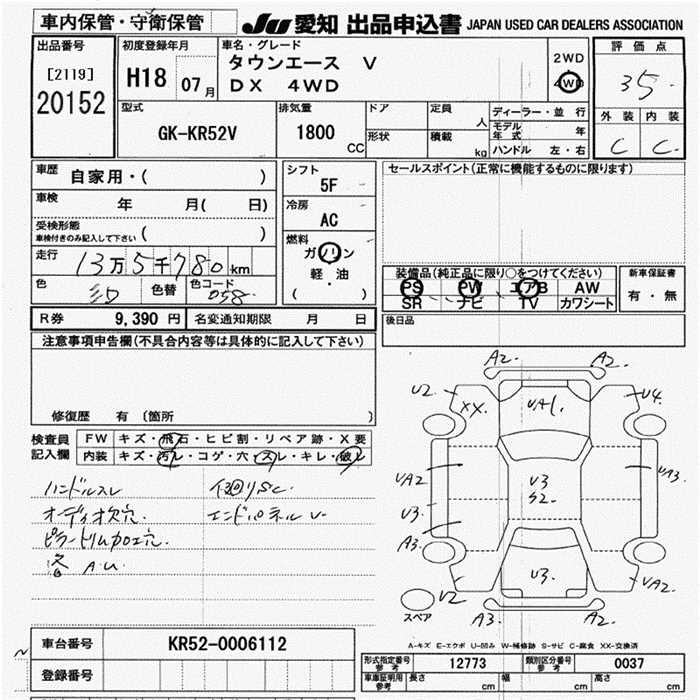 車内保管・守衛保管
JU 愛知 出品申込書 JAPAN USED CAR DEALERS ASSOCIATION
出品番号
[2119]
20152
初度登録年月
H18 07月
車名・グレード
タウンエース V
DX 4WD
2WD
4WD
評価点
35.
外装 内装
C C.
型式
GK-KR52V
排気量
1800
CC
ドア
形状
定員
人
積載
kg
ディーラー・並行
モデル年式 年
ハンドル 左・右
車歴
自家用・( )
車検
年 月( 日)
受検形態
車検付きのみ記入して下さい ( )
走行
13万5千780km
色
色替
色コード
058
シフト
5F
冷房
AC
燃料
ガソリン
軽・油
( )
セールスポイント(正常に機能するものに限ります)
装備品(純正品に限り○をつけてください)
PS PW エアB AW
SR ナビ TV カワシート
新車保証書
有・無
後日品
R券 9,390円 名変通知期限 月 日
注意事項申告欄(不具合内容等は具体的に記入して下さい)
修復歴 有〔箇所 〕
検査員
記入欄
FW キズ・飛石・ヒビ割・リペア跡・X要
内装 キズ・汚れ・コゲ・穴・スレ・キレ・破れ
ハンドルスレ
オーディオ欠穴.
ピラートリム加工穴.
各 A.U.
下回りSC.
エンドパネルU-
A2. A2.
U2 XX. UA1. U4.
UA2 U3 S2 UA3.
U3.
A3.
U3. UA2.
U2
A3. A2.
スペア
A-キズ E-エクボ U-凹み W-補修跡 S-サビ C-腐食 XX-交換済
車台番号 KR52-0006112
登録番号
形式指定番号 参考 12773 類別区分番号 参考 0037
車庫証明用 参考 長さ cm 幅 cm 高さ cm